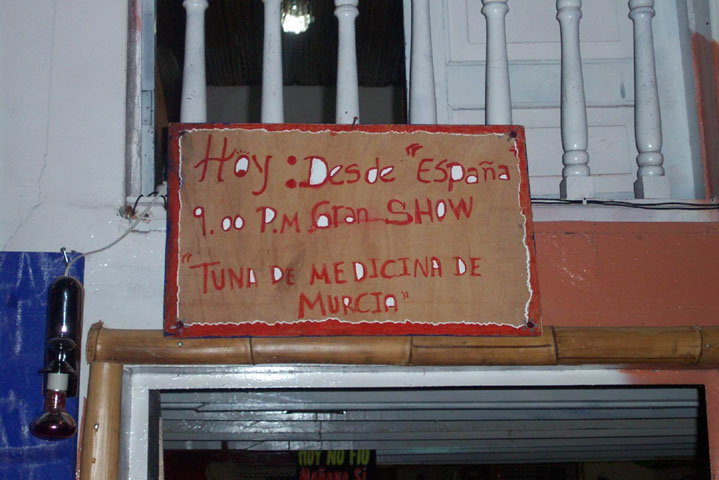 Hoy : Desde "España
9.00 P.M Gran SHOW
"TUNA DE MEDICINA DE
MURCIA"
HOY NO FIO
MAÑANA SI